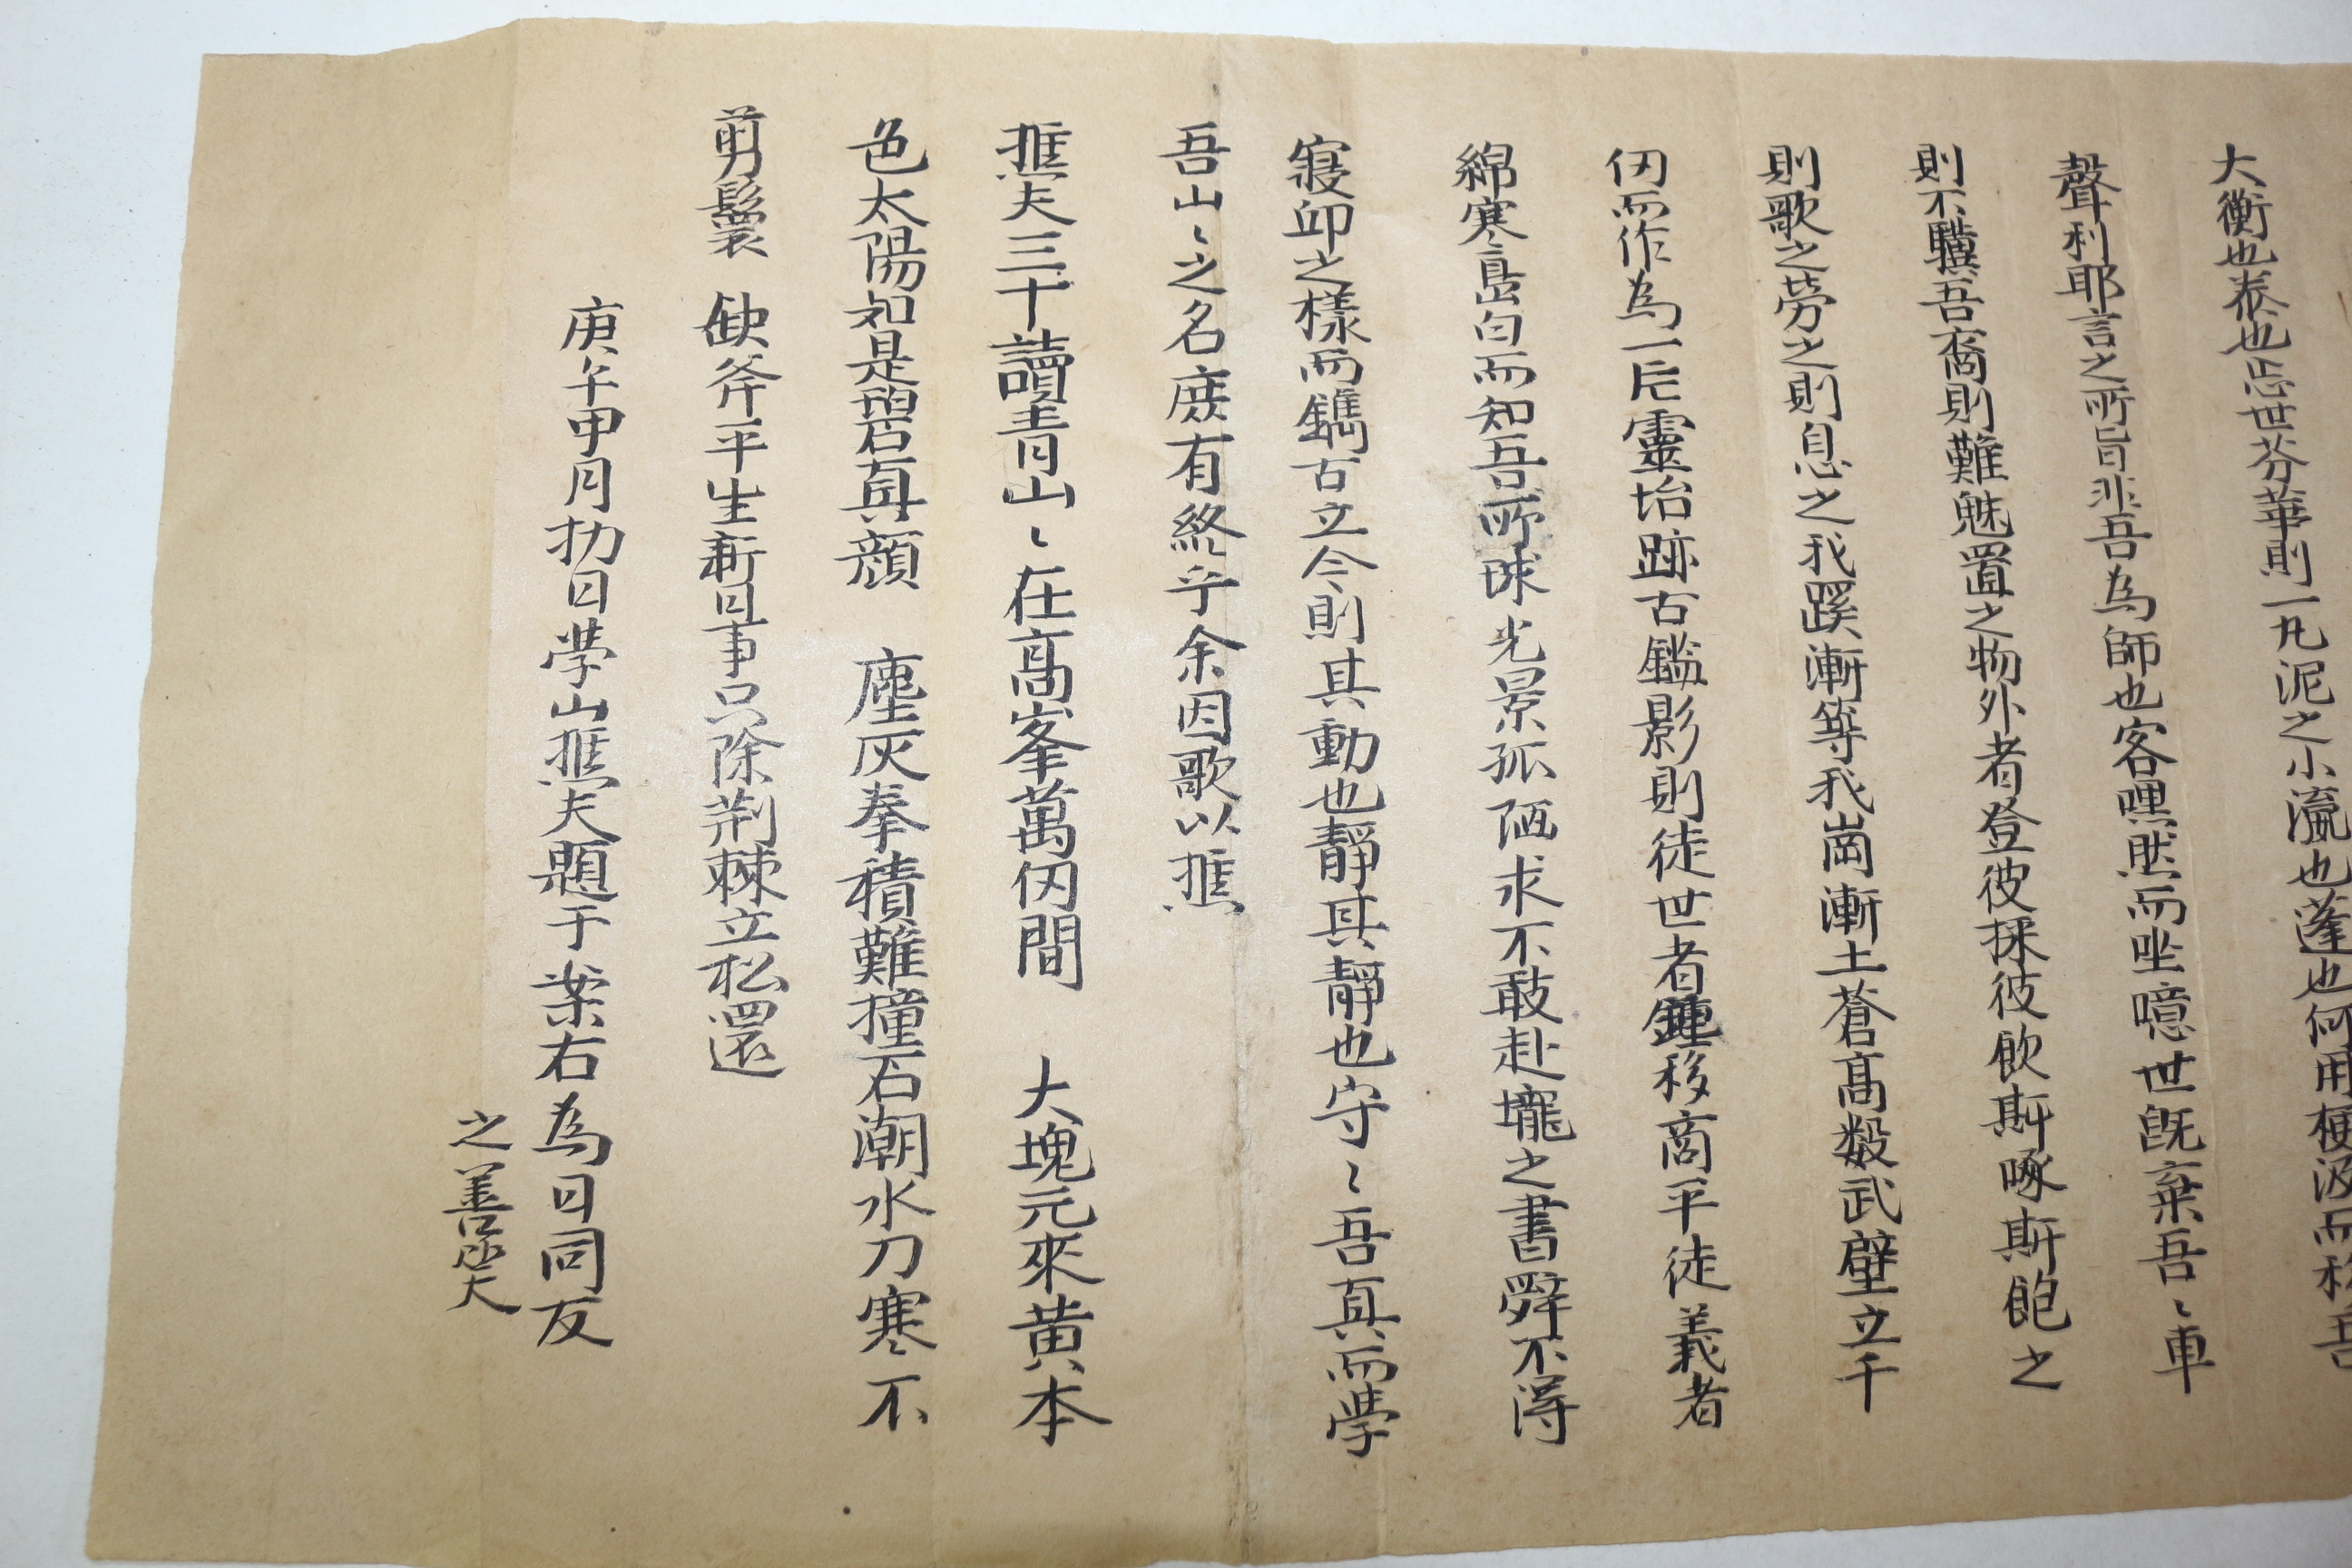 大衡也泰也忘世芬華則一丸泥之小瀛也蓬也何用梗汲而移吾
聲利耶言之所旨非吾為師也客嘿然而坐噫世旣棄吾〻車
則不驥吾裔則難魅置之物外者登彼採彼飮斯啄斯飽之
則歌之勞之則息之我蹊漸等我崗漸土蒼高數武壁立千
仞而作為一片靈坮跡古鑑影則徒世者鍾移商平徒義者
綿寒暠白而知吾所 光景孤陋求不敢赴壠之書辭不得
寢卬之樣而鐫古立今則其動也靜其靜也守〻吾眞而學
吾山〻之名庶有終乎余因歌以樵
樵夫三十讀靑山〻在高峯萬仞間 大塊元來黃本
色太陽如是碧眞顔 塵灰拳積難撞石潮水刀寒不
剪鬟 缺斧平生斬日事只除荊棘立松還
庚午甲月扐日學山樵夫題于案右為日同友
之善笑